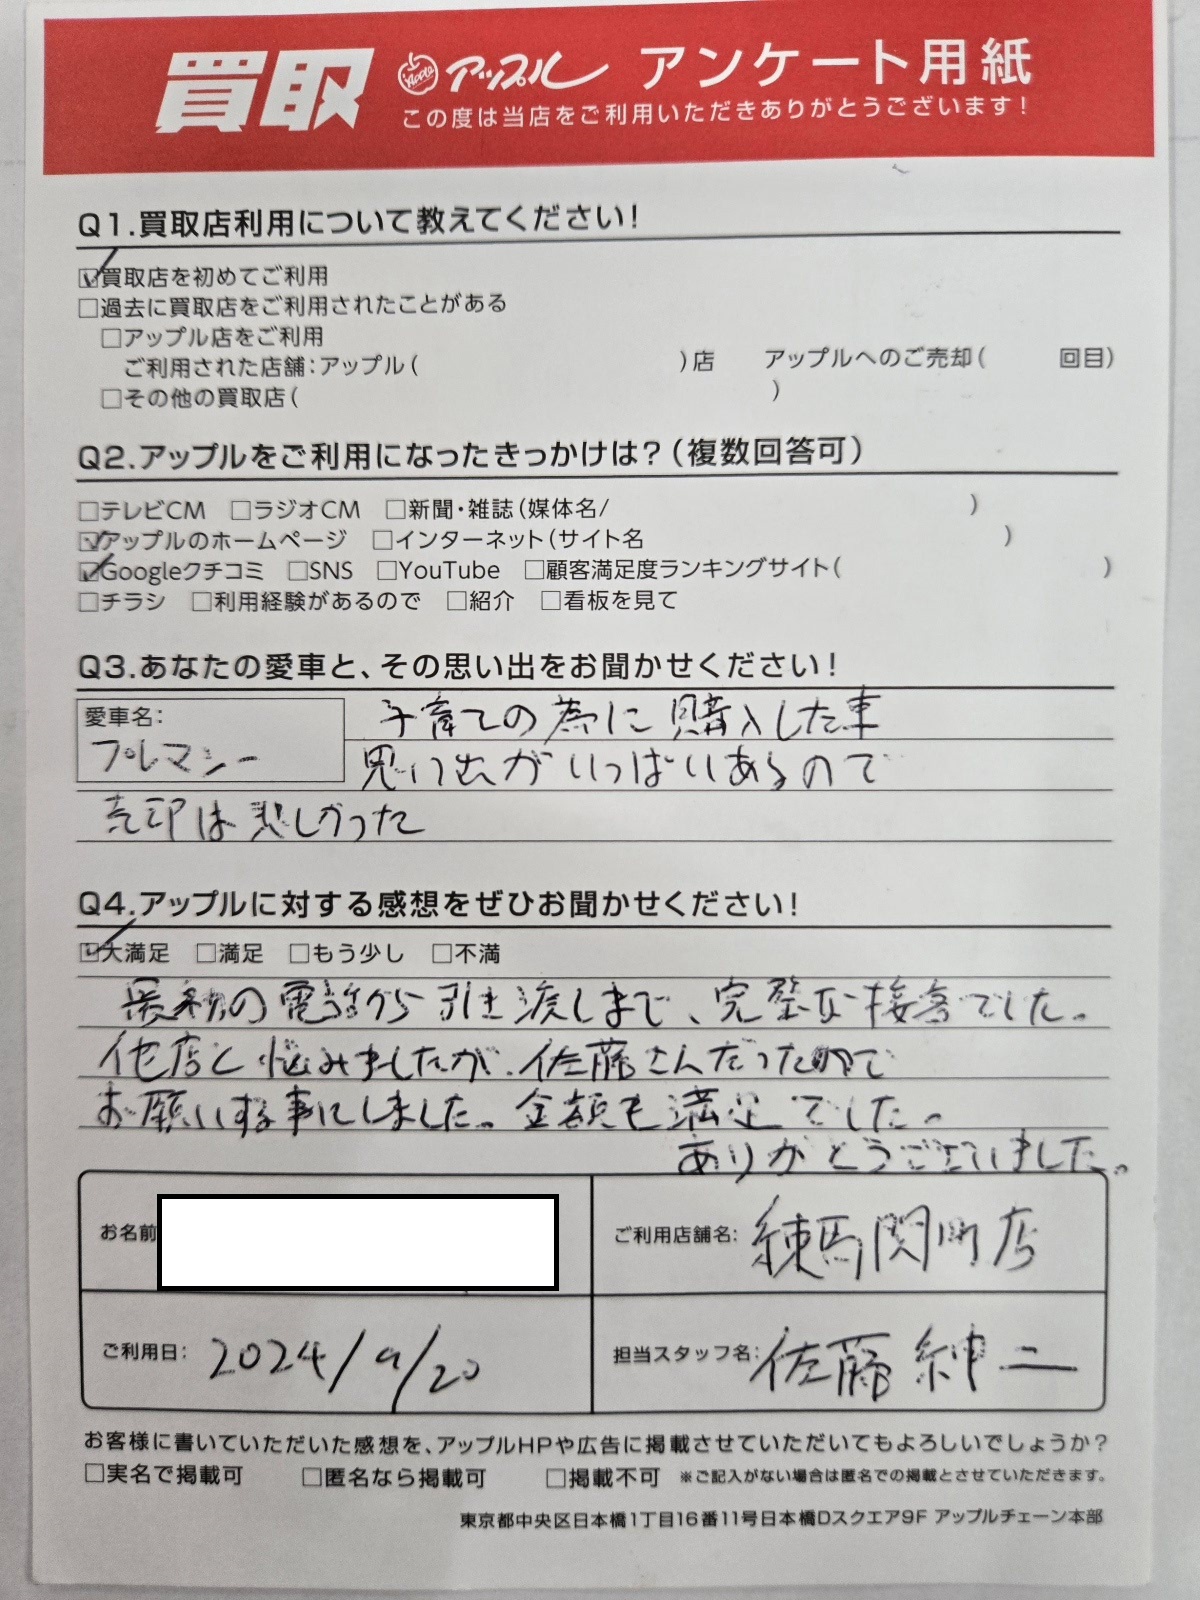 買取 Apple アップル アンケート用紙
この度は当店をご利用いただきありがとうございます！
Q1.買取店利用について教えてください！
☑買取店を初めてご利用
□過去に買取店をご利用されたことがある
□アップル店をご利用
ご利用された店舗：アップル（ ）店 アップルへのご売却（ 回目）
□その他の買取店（ ）
Q2.アップルをご利用になったきっかけは？（複数回答可）
□テレビCM □ラジオCM □新聞・雑誌（媒体名/ ）
☑アップルのホームページ □インターネット（サイト名 ）
☑Googleクチコミ □SNS □YouTube □顧客満足度ランキングサイト（ ）
□チラシ □利用経験があるので □紹介 □看板を見て
Q3.あなたの愛車と、その思い出をお聞かせください！
愛車名：
プレマシー
子育ての為に購入した車
思い出がいっぱいあるので
売却は悲しかった
Q4.アップルに対する感想をぜひお聞かせください！
☑大満足 □満足 □もう少し □不満
最初の電話から引き渡しまで、完璧な接客でした。
他店と悩みましたが、佐藤さんだったので
お願いする事にしました。金額も満足でした。
ありがとうございました。
お名前
ご利用店舗名：練馬関町店
ご利用日：2024/9/20
担当スタッフ名：佐藤紳二
お客様に書いていただいた感想を、アップルHPや広告に掲載させていただいてもよろしいでしょうか？
□実名で掲載可 □匿名なら掲載可 □掲載不可 ※ご記入がない場合は匿名での掲載とさせていただきます。
東京都中央区日本橋1丁目16番11号日本橋Dスクエア9F アップルチェーン本部